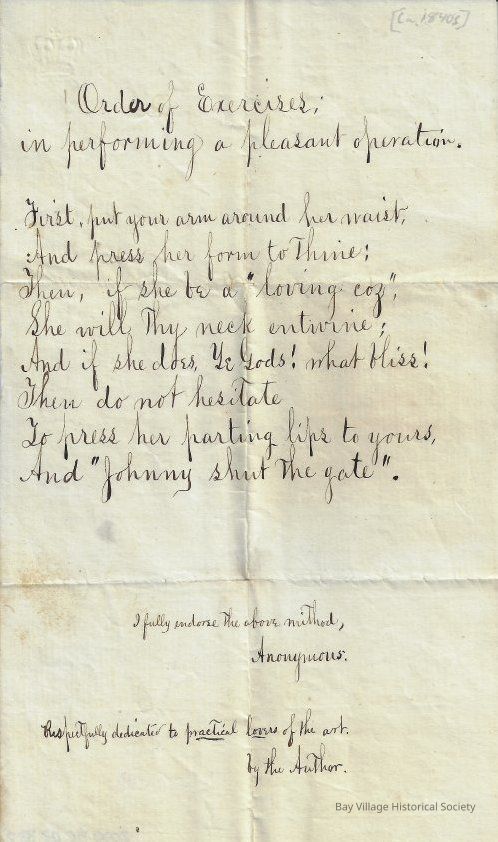 [Ca. 1840s]
Order of Exercises;
in performing a pleasant operation.
First, put your arm around her waist,
And press her form to Thine;
Then, if she be a "loving coz",
She will Thy neck entwine;
And if she does, Ye Gods! what bliss!
Then do not hesitate
To press her parting lips to yours,
And "Johnny shut the gate".
I fully endorse the above method,
Anonymous.
Respectfully dedicated to practical lovers of the art.
by the Author.
Bay Village Historical Society